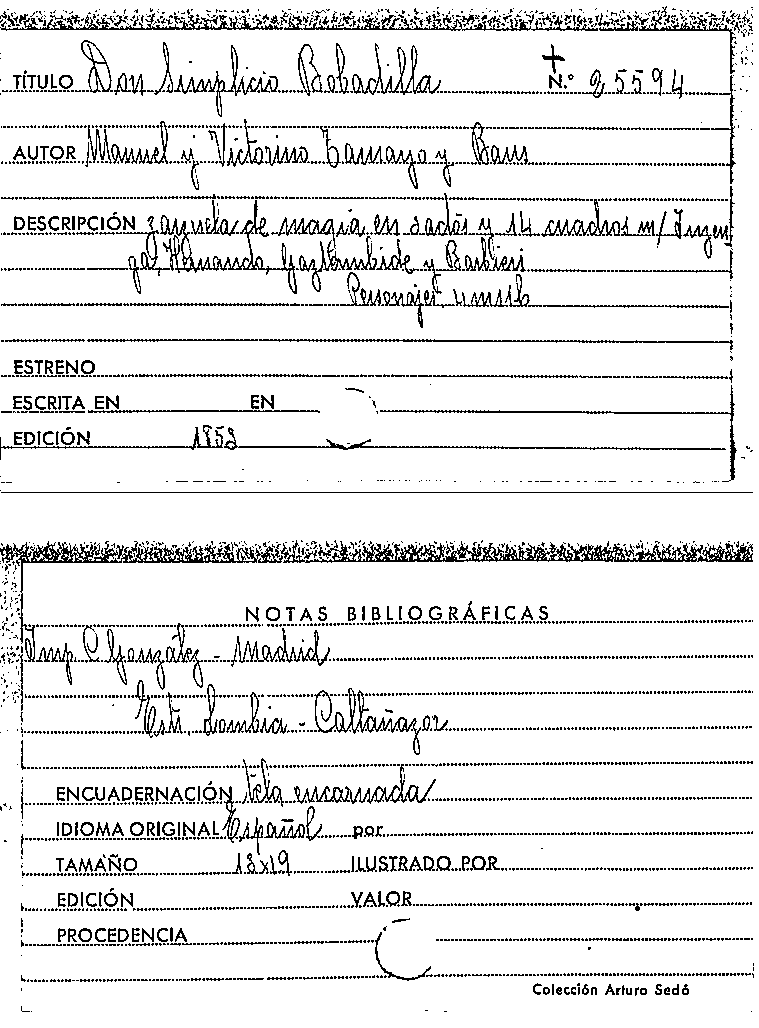 TÍTULO Don Simplicio Bobadilla N.º 25594
AUTOR Manuel y Victorino Tamayo y Baus
DESCRIPCIÓN zarzuela de magia en 3 actos y 14 cuadros m/ Inzen
ga, Hernando, Gaztambide y Barbieri
Personajes
ESTRENO
ESCRITA EN EN
EDICIÓN 1853
NOTAS BIBLIOGRÁFICAS
Imp C González - Madrid
Estr. Lombia - Caltañazor
ENCUADERNACIÓN tela encarnada
IDIOMA ORIGINAL Español por
TAMAÑO 13x19 ILUSTRADO POR
EDICIÓN VALOR
PROCEDENCIA
Colección Arturo Sedó